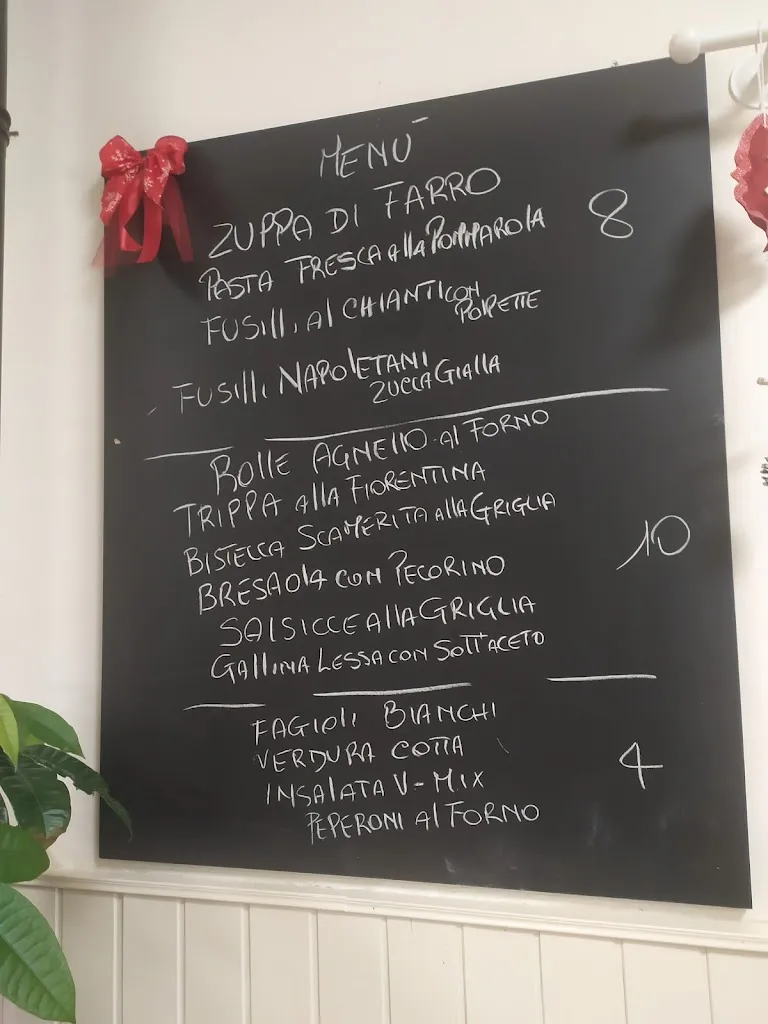 MENÙ
ZUPPA DI FARRO
PASTA FRESCA alla POMMAROLA
8
FUSILLI Al CHIANTI CON
POLPETTE
FUSILLI NAPOLETANI
ZUCCA GIALLA
ROLLE AGNELLO al FORNO
TRIPPA alla FIORENTINA
BISTECCA SCAMERITA alla GRIGLIA
10
BRESAOLA CON PECORINO
SALSICCE Alla GRIGLIA
GALLINA LESSA CON SOTT'ACETO
FAGIOLI BIANCHI
VERDURA COTTA
4
INSALATA V-MIX
PEPERONI Al FORNO